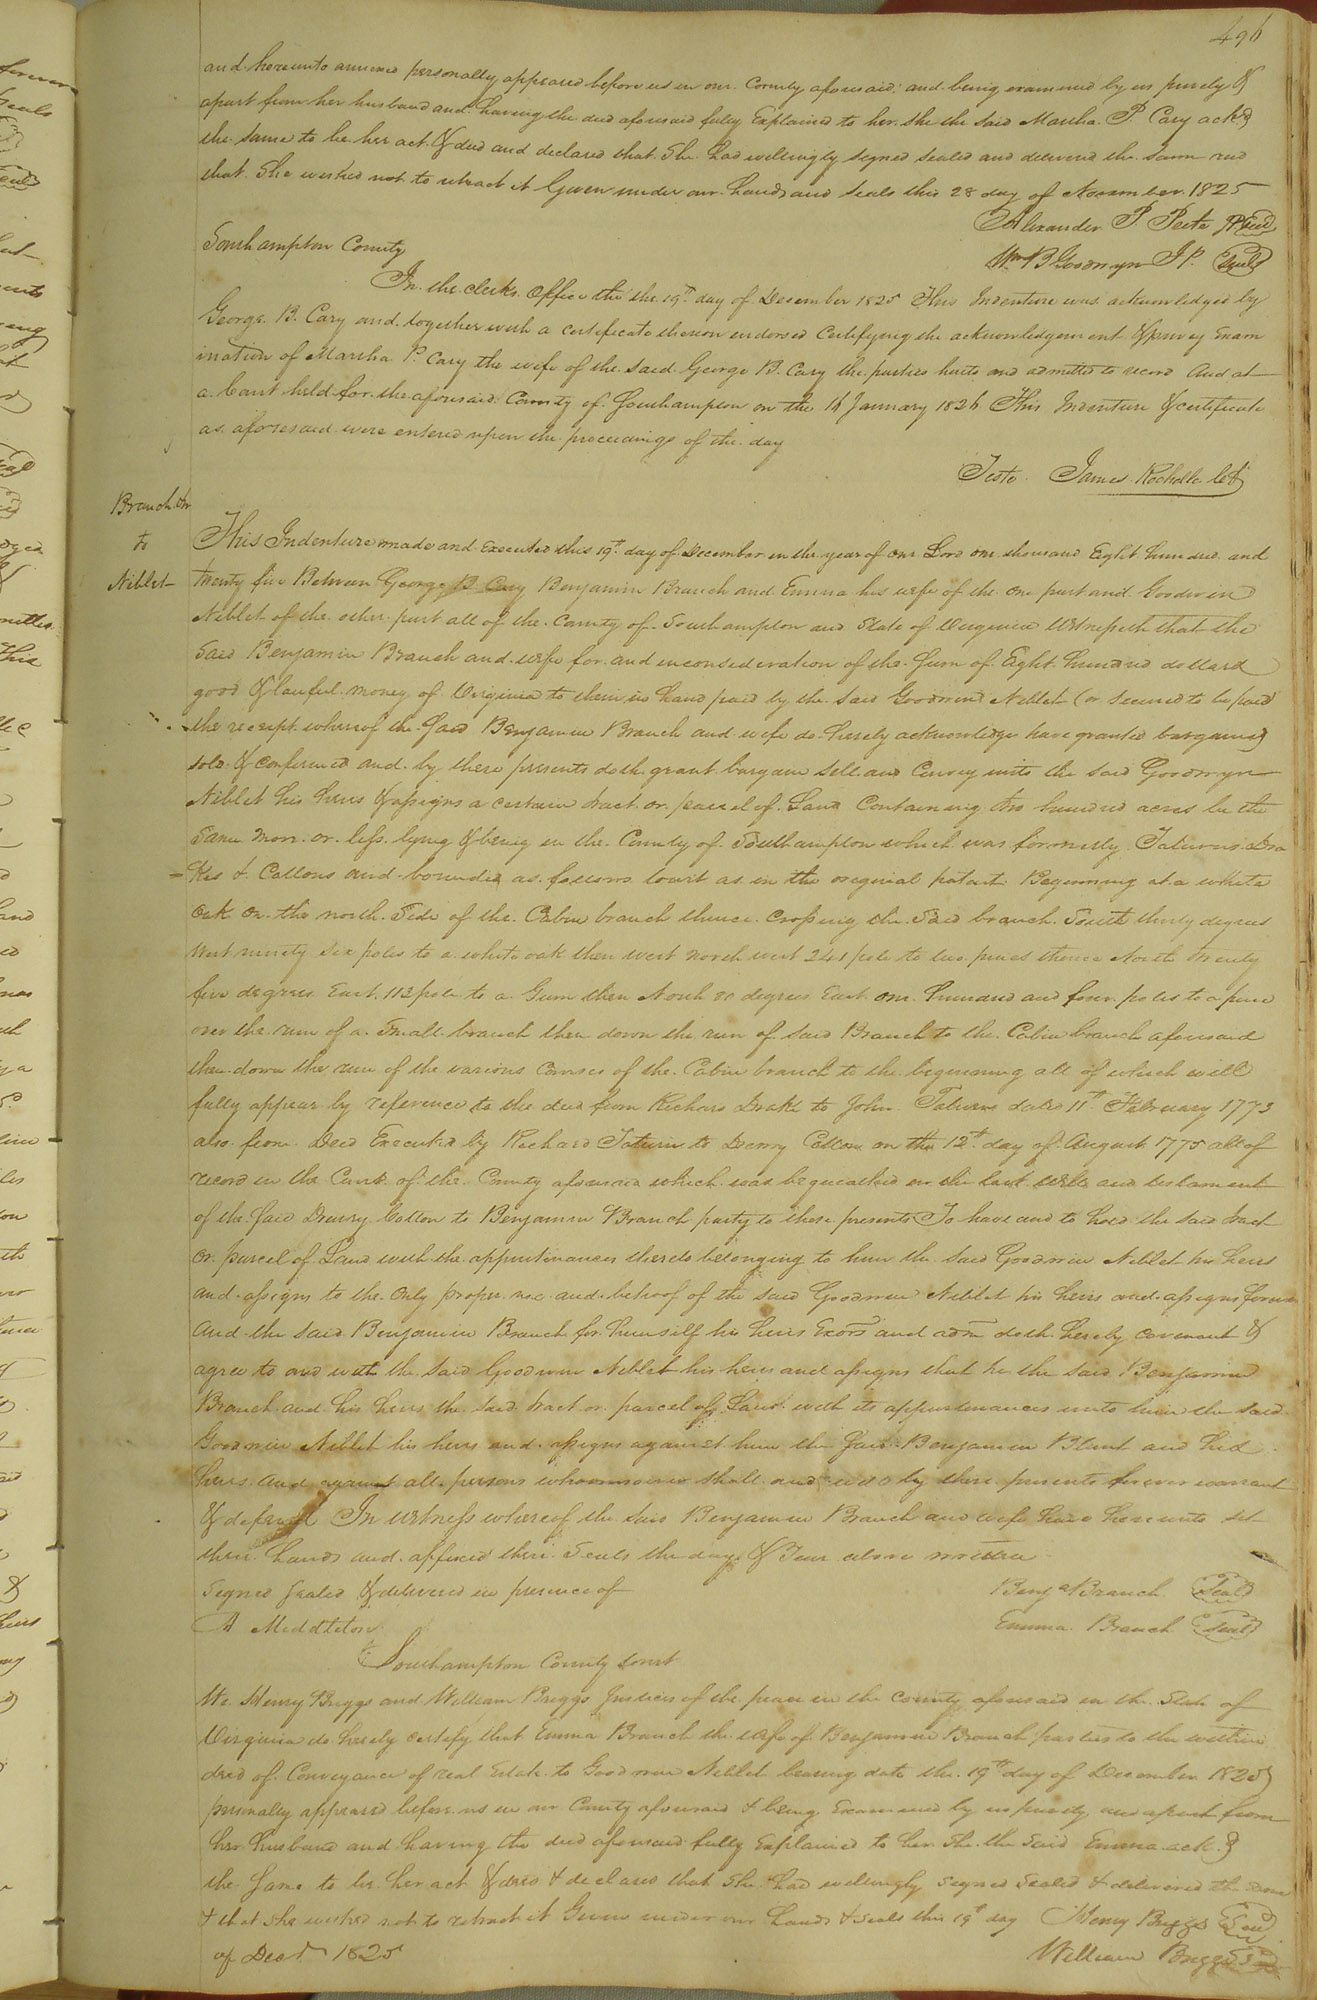 496
and hereunto annexed personally appeared before us in our County aforesaid and being examined by us privily &
apart from her husband and having the deed aforesaid fully Explained to her she the said Martha P. Cary ackd
the same to be her act & deed and declared that She had willingly signed sealed and delivered the same and
that She wished not to retract it Given under our hands and seals this 28 day of November 1825
Alexander P. Peete JP Seal
Southampton County
Wm B Goodwyn J P. Seal
In the clerks Office the the 19th day of December 1825 This Indenture was acknowledged by
George B. Cary and together with a certificate thereon endorsed Certifying the acknowledgement & privey Exam
ination of Martha P. Cary the wife of the said George B. Cary the parties hereto and admitted to record And at
a Court held for the aforesaid County of Southampton on the 16 January 1826 This Indenture & certificate
as aforesaid were entered upon the proceedings of the day
Teste James Rochelle
Branch &r
to
Niblet
This Indenture made and Executed this 19th day of December in the year of our Lord one thousand Eight hundred and
twenty five Between George B Cary Benjamin Branch and Emma his wife of the one part and Goodwin
Niblet of the other part all of the County of Southampton and State of Virginia Witnesseth that the
Said Benjamin Branch and wife for and in consideration of the Sum of Eight hundred dollars
good & lawful money of Virginia to them in hand paid by the said Goodwin Niblet (or secured to be paid
the receipt whereof the said Benjamin Branch and wife do hereby acknowledge have granted bargained
sold & confirmed and by these presents doth grant bargain sell and Convey unto the said Goodwyn
Niblet his heirs & assigns a certain tract or parcel of Land Containing two hundred acres be the
Same more or less lying & being in the County of Southampton which was formerly Tatums Dra
=kes & Cottons and bounded as follows towit as in the original patent Beginning at a white
oak on the north Side of the Cabin branch thence Crossing the Said branch South thirty degrees
West ninety six poles to a white oak then west north west 241 pole to two pines thence North twenty
five degrees East 112 pole to a Gum then North 80 degrees East one hundred and four poles to a pine
over the run of a Small branch then down the run of said Branch to the Cabin branch aforesaid
then down the run of the various Courses of the Cabin branch to the beginning all of which will
fully appear by reference to the deed from Richard Drake to John Tatums dated 11th February 1773
also from Deed Executed by Richard Tatum to Drewry Cotton on the 12th day of August 1775 all of
record in the Court of the County aforesaid which was bequeathed in the last Will and testament
of the said Drewry Cotton to Benjamin Branch party to these presents To have and to hold the said tract
or parcel of Land with the appurtenances thereto belonging to him the said Goodwin Niblet his heirs
and assigns to the only proper use and behoof of the said Goodwin Niblet his heirs and assigns forever
And the said Benjamin Branch for himself his heirs Exors and adm doth hereby covenant &
agree to and with the said Goodwin Niblet his heirs and assigns that he the said Benjamin
Branch and his heirs the said tract or parcel of Land with its appurtenances unto him the said
Goodwin Niblet his heirs and assigns against him the said Benjamin Blunt and his
heirs and against all persons whomsoever shall and will by these presents forever warrant
& defend In Witness whereof the said Benjamin Branch and wife have hereunto set
their hands and affixed their Seals the day & Year above written
Signed Sealed & delivered in presence of
Benja Branch Seal
A Middleton
Emma Branch Seal
Southampton County Court
We Henry Briggs and William Briggs Justices of the peace in the County aforesaid in the State of
Virginia do hereby certify that Emma Branch the wife of Benjamin Branch parties to the within
deed of Conveyance of real Estate to Goodwin Niblet bearing date the 19th day of December 1825
personally appeared before us in our County aforesaid & being Examined by us privily and apart from
her husband and having the deed aforesaid fully Explained to her She the Said Emma ackd
the Same to be her act & deed & declared that She had willingly Signed Sealed & delivered the same
& that she wished not to retract it Given under our hands & seals this 19th day Henry Briggs Seal
of Decr 1825
William Briggs Seal